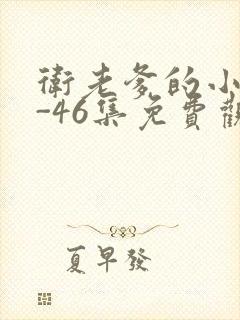 衛老爹的小
-46集免費觀
夏早發